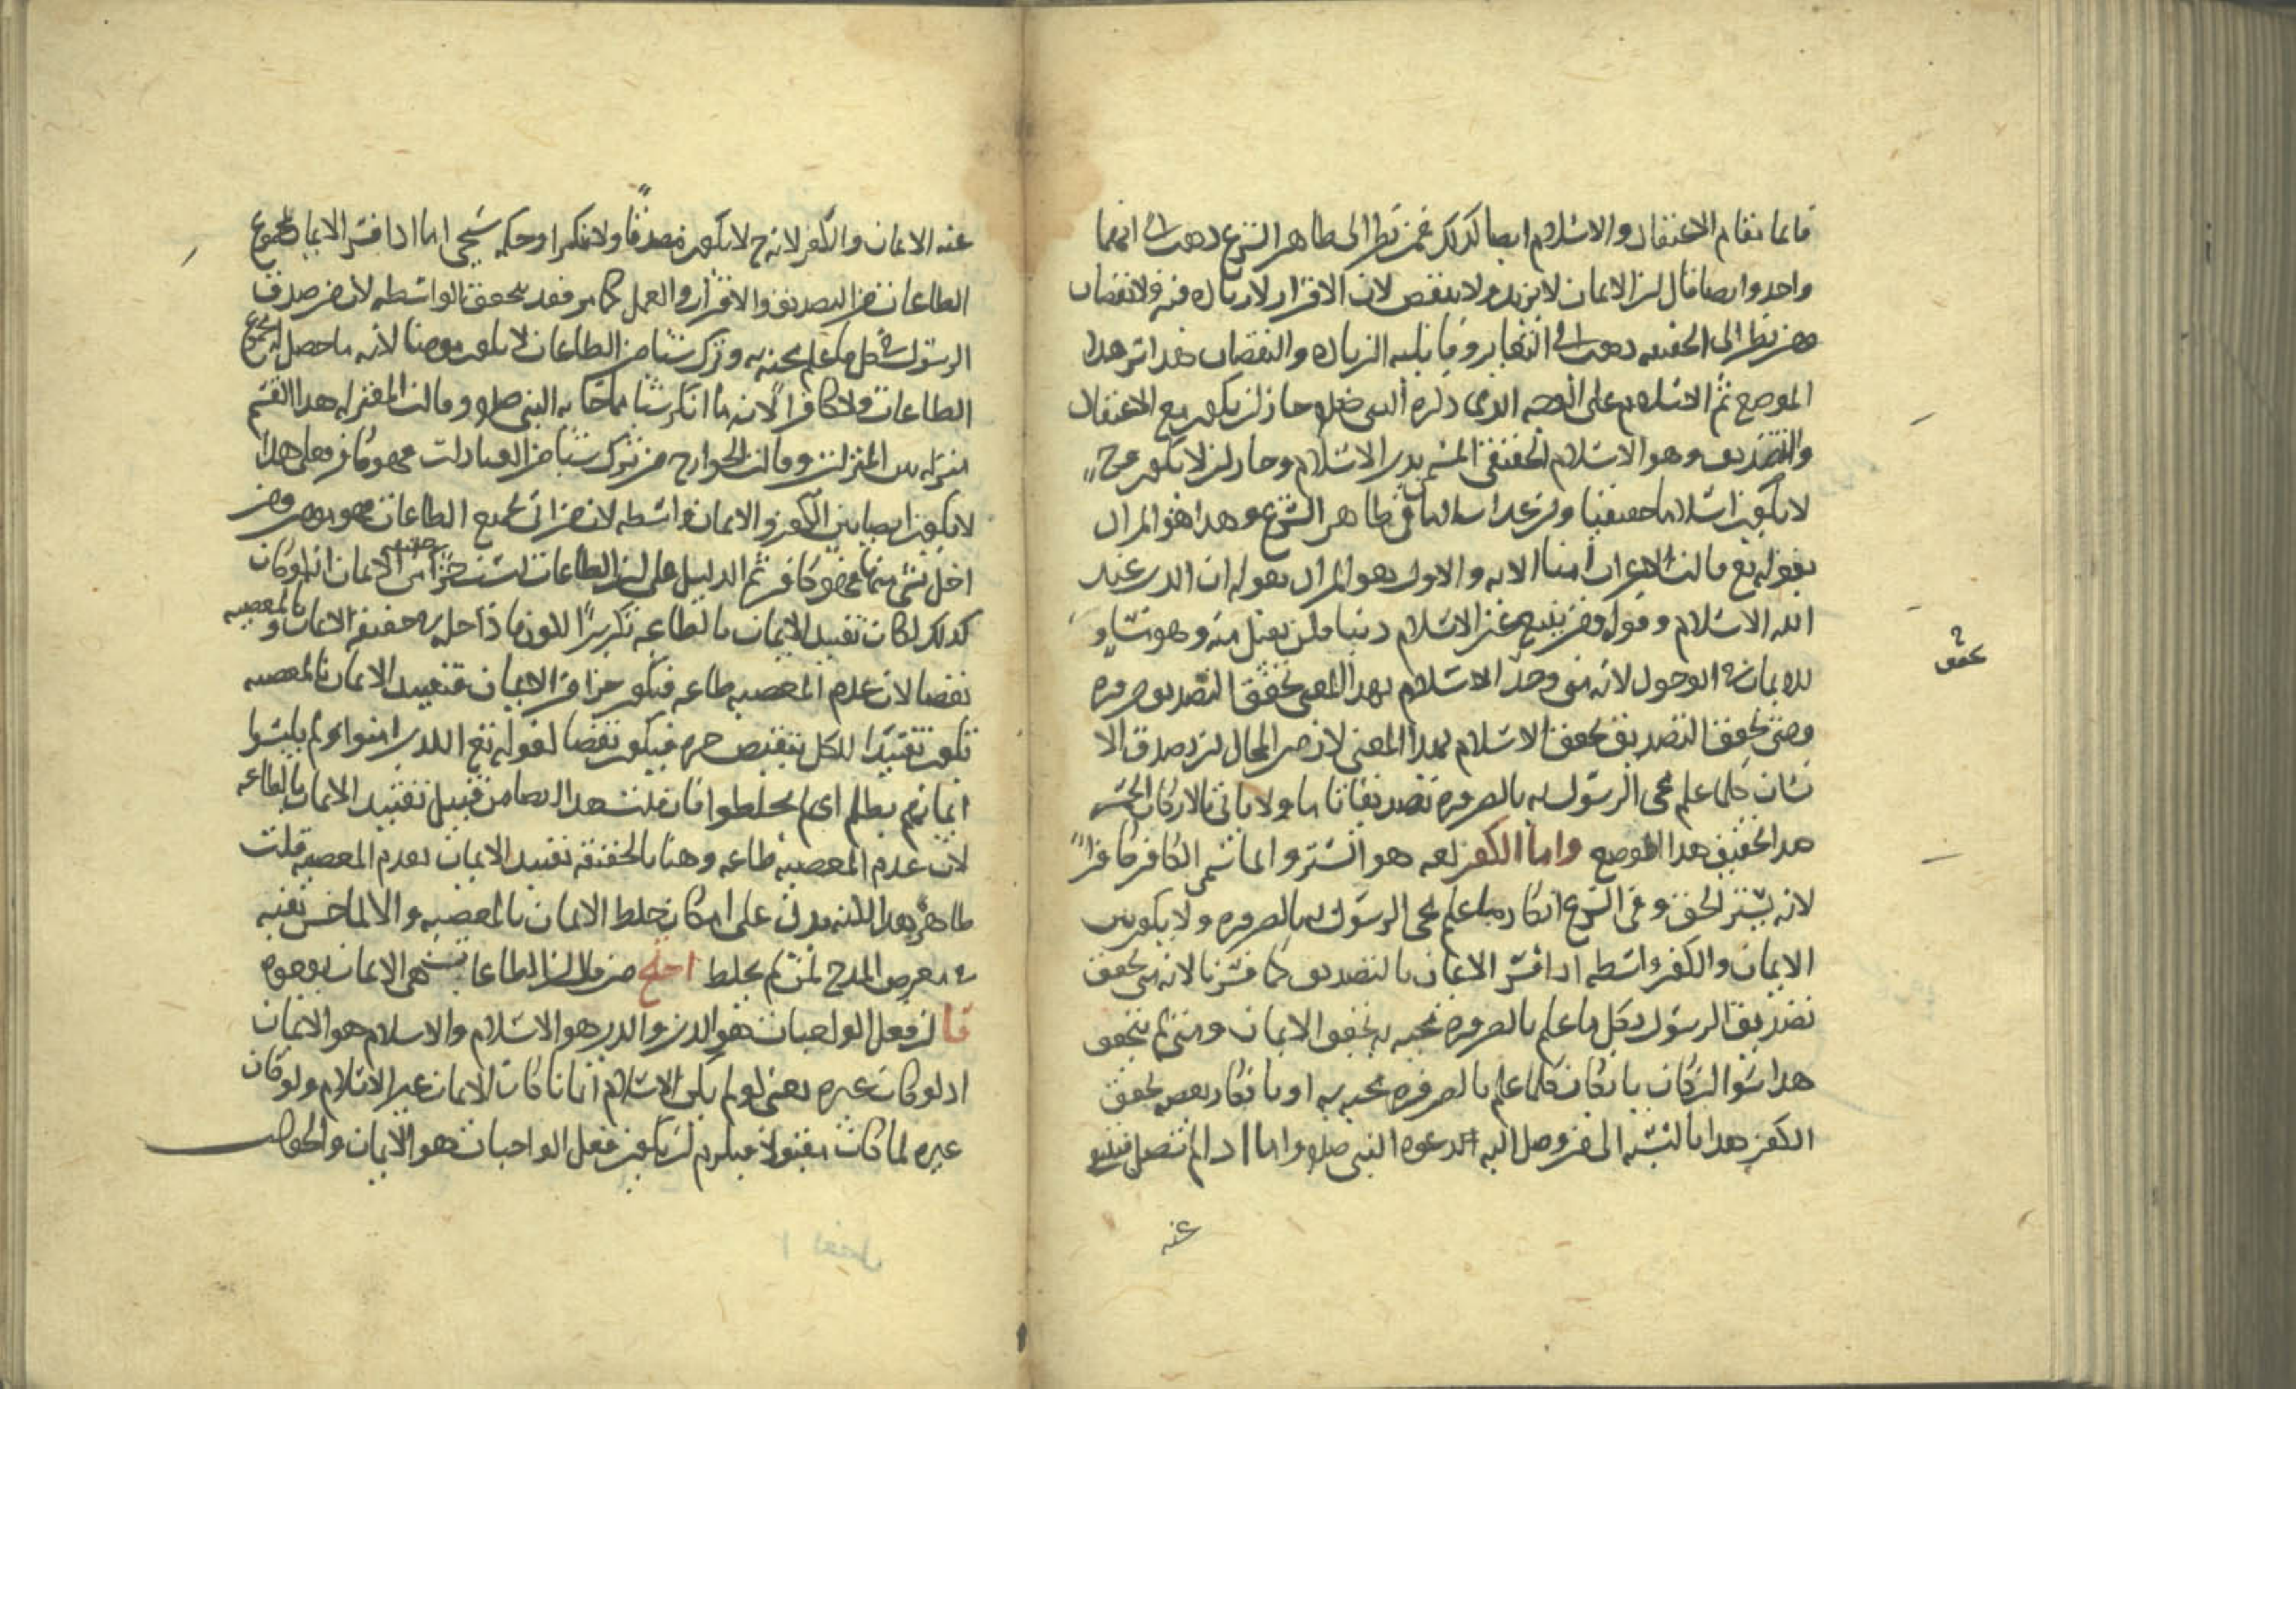 قائما مقام الاعتقاد والاسلام ايضا كذلك فمن نظر الى ظاهر الشرع ذهب الى انهما
واحد وايضا قال ان الايمان لا يزيد ولا ينقص لان الاقرار لا زيادة فيه ولا نقصان
ومن نظر الى الحقيقة ذهب الى التغاير وقابلية الزيادة والنقصان هذا تر هذا
الموضع ثم الاسلام على الوجه الذى ذكره النبى صلعم جاز ان يكون مع الاعتقاد
والتصديق وهو الاسلام الحقيقى المسمى بدين الاسلام وجاز ان لا يكون معه ح
لا يكون اسلاما حقيقيا وان عد اسلاما فى ظاهر الشرع وهذا هو المراد
بقوله تع قالت الاعراب امنا الاية والاول هو المراد بقوله ان الدين عند
الله الاسلام وقوله ومن يبتغ غير الاسلام دينا فلن يقبل منه وهو مساو
للايمان فى الوجود لانه متى وجد الاسلام بهذا المعنى تحقق التصديق ضرورة
ومتى تحقق التصديق تحقق الاسلام بهذا المعنى لان من المحال ان يصدق الا
نسان كلما علم مجى الرسول به بالضرورة تصديقا تاما ولا ياتى بالاركان الخمسة
هذا تحقيق هذا الموضع واما الكفر لغة هو الستر وانما سمى الكافر كافرا
لانه يستر الحق وفى الشرع انكار ما علم مجى الرسول به بالضرورة ولا يكون بين
الايمان والكفر واسطة اذا فسر الايمان بالتصديق كما فسرنا لانه متى تحقق
تصديق الرسول بكل ما علم بالضرورة مجيه به تحقق الايمان ومتى لم يتحقق
هذا سوا كان بانكار كلما علم بالضرورة مجيه به او بانكار بعضه تحقق
الكفر هذا بالنسبة الى من وصل اليه الدعوة النبى صلعم واما اذا لم تصل فينتفى
عنه
تحقق
عنه الايمان والكفر لانه ح لا يكون مصدقا ولا منكرا وحكمه سيجى اما اذا فسر الايمان بمجموع
الطاعات من التصديق والاقرار والعمل كما مر فقد يتحقق الواسطة لان من صدق
الرسول فى كل ما علم مجيه به وترك شيا من الطاعات لا يكون مومنا لانه ما حصل له مجموع
الطاعات ولا كافرا لانه ما انكر شيا مما جا به النبى صلعم وقالت المعتزلة هذا القسم
منزلة بين المنزلتين وقالت الخوارج من ترك شيا من العبادات فهو كافر فعلى هذا
لا يكون ايضا بين الكفر والايمان واسطة لان من اتى بجميع الطاعات فهو مومن ومن
اخل بشى منها فهو كافر ثم الدليل على ان الطاعات ليست جزا من الايمان انه لو كان
كذلك لكان تقييد الايمان بالطاعة تكريرا لكونها داخلة فى حقيقة الايمان وبالمعصية
نقضا لان عدم المعصية طاعة فيكون جزا من الايمان فتقييد الايمان بالمعصية
يكون تقييدا للكل بنقيض جزه فيكون نقضا لقوله تع الذين امنوا ولم يلبسوا
ايمانهم بظلم اى لم يخلطوا فان قلت هذا ايضا من قبيل تقييد الايمان بالطاعة
لان عدم المعصية طاعة وهنا بالحقيقة تقييد الايمان بعدم المعصية قلت
ظاهر هذا الاية يدل على امكان خلط الايمان بالمعصية والا لما حسن نفيه
فى معرض المدح لمن لم يخلط احتج من قال ان الطاعات هى الايمان بوجوه
فا ان فعل الواجبات هو الدين والدين هو الاسلام والاسلام هو الايمان
اذ لو كان غيره يعنى لو لم يكن الاسلام ايمانا كان الايمان غير الاسلام ولو كان
غيره لما كان مقبولا فيلزم ان يكون فعل الواجبات هو الايمان والجواب